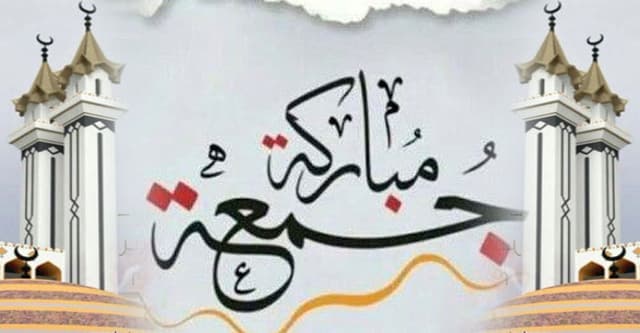 جُمعة
مُباركة